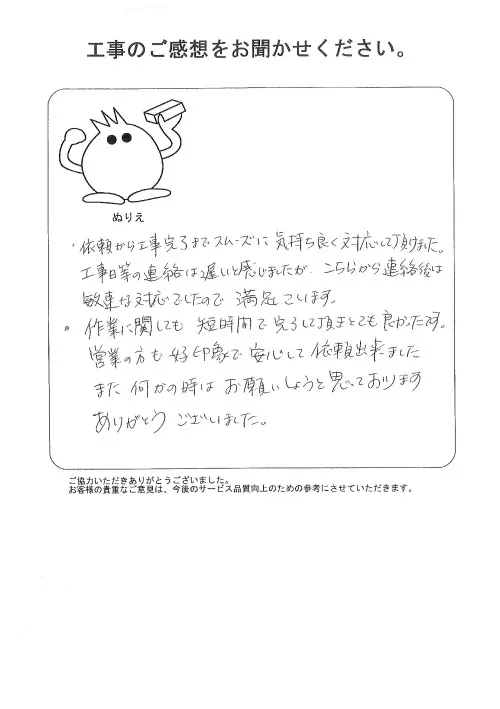 工事のご感想をお聞かせください。
ぬりえ
・依頼から工事完了までスムーズに気持ち良く対応して頂けました。
工事日等の連絡は遅いと感じましたが、こちらから連絡後は
敏速な対応でしたので満足しています。
・作業に関しても短時間で完了して頂きとても良かったです。
営業の方も好印象で安心して依頼出来ました
また何かの時はお願いしようと思っております
ありがとうございました。
ご協力いただきありがとうございました。
お客様の貴重なご意見は、今後のサービス品質向上のための参考にさせていただきます。